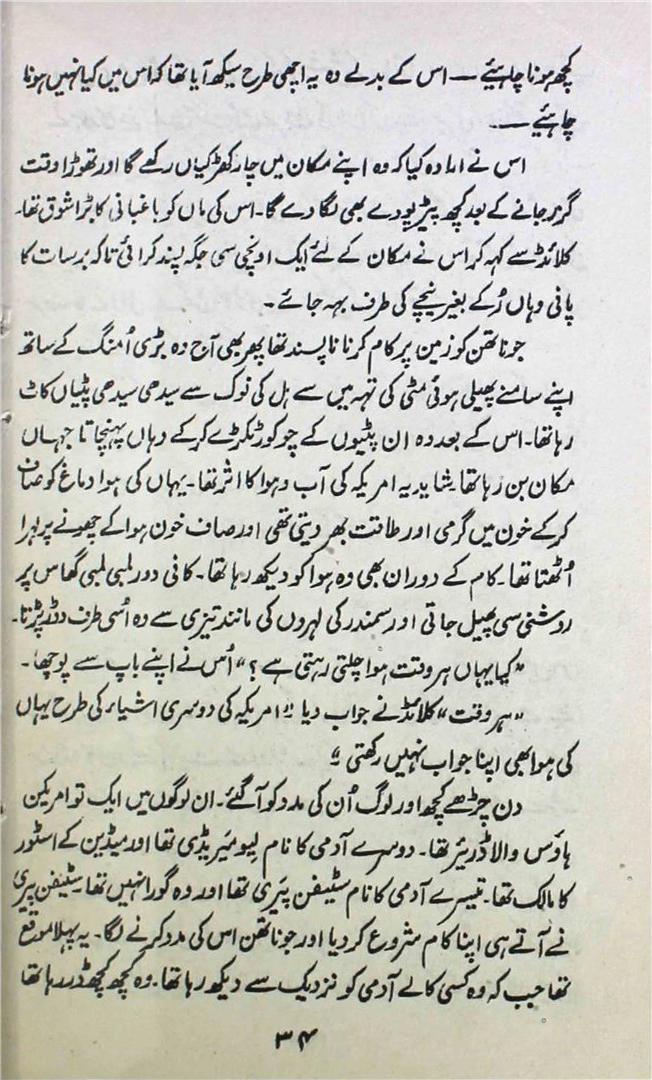 کچھ ہونا چاہیئے — اس کے بدلے وہ یہ اچھی طرح سیکھ آیا تھا کہ اس میں کیا نہیں ہونا
چاہیئے —
اس نے ارادہ کیا کہ وہ اپنے مکان میں چار کھڑکیاں رکھے گا اور تھوڑا وقت
گزر جانے کے بعد کچھ پیڑ پودے بھی لگا دے گا۔ اس کی ماں کو باغبانی کا بڑا شوق تھا۔
کلائڈ سے کہہ کر اس نے مکان کے لئے ایک اونچی سی جگہ پسند کرائی تاکہ برسات کا
پانی وہاں رُکے بغیر نیچے کی طرف بہہ جائے۔
جوناتھن کو زمین پر کام کرنا ناپسند تھا پھر بھی آج وہ بڑی اُمنگ کے ساتھ
اپنے سامنے پھیلی ہوئی مٹی کی تہہ میں سے ہل کی نوک سے سیدھی سیدھی پٹیاں کاٹ
رہا تھا۔ اس کے بعد وہ ان پٹیوں کے چوکور ٹکڑے کرکے وہاں پہنچاتا جہاں
مکان بن رہا تھا۔ شاید یہ امریکہ کی آب و ہوا کا اثر تھا۔ یہاں کی ہوا دماغ کو صاف
کرکے خون میں گرمی اور طاقت بھر دیتی تھی اور صاف خون ہوا کے چھونے پر لہرا
اُٹھتا تھا۔ کام کے دوران بھی وہ ہوا کو دیکھ رہا تھا۔ کافی دور لمبی لمبی گھاس پر
روشنی سی پھیل جاتی اور سمندر کی لہروں کی مانند تیزی سے وہ اُسی طرف دوڑ پڑتا۔
”کیا یہاں ہر وقت ہوا چلتی رہتی ہے؟“ اُس نے اپنے باپ سے پوچھا۔
”ہر وقت“ کلائڈ نے جواب دیا ”امریکہ کی دوسری اشیاء کی طرح یہاں
کی ہوا بھی اپنا جواب نہیں رکھتی“
دن چڑھے کچھ اور لوگ اُن کی مدد کو آگئے۔ ان لوگوں میں ایک تو امریکن
ہاؤس والا ڈریئر تھا۔ دوسرے آدمی کا نام لیومیریڈی تھا اور میڈین کے اسٹور
کا مالک تھا۔ تیسرے آدمی کا نام سٹیفن پیری تھا اور وہ گورا نہیں تھا۔ سٹیفن پیری
نے آتے ہی اپنا کام شروع کر دیا اور جوناتھن اس کی مدد کرنے لگا۔ یہ پہلا موقع
تھا جب کہ وہ کسی کالے آدمی کو نزدیک سے دیکھ رہا تھا۔ وہ کچھ کچھ ڈر رہا تھا
۳۴